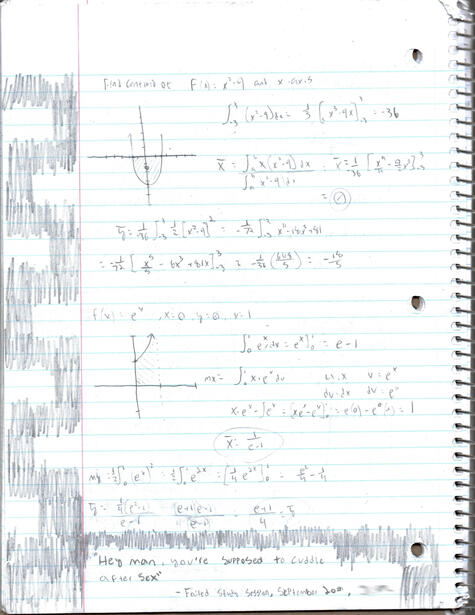 Find centroid of F(x) = x²-9 and x-axis
∫₋₃³ (x²-9)dx = [x³-9x]₋₃³ = -36
x̄ =
∫ x(x²-9)dx
∫ x²-9 dx
ȳ = ½[x²-9]² = -1/72 ∫ x⁴-18x²+81
= -1/72 [x⁵/5 - 6x³ + 81x]₋₃³ = = -18/5
f(x) = eˣ, x=0, y=0, x=1
∫₀¹ eˣdx = eˣ]₀¹ = e-1
mx = ∫₀¹ x·eˣ
u=x v=eˣ
x·eˣ-∫eˣ = [xeˣ-eˣ]₀¹ = e(0)-e⁰( ) = 1
x̄ = 1/e-1
½∫₀¹(eˣ)² = ½∫₀¹e²ˣ = [¼e²ˣ]₀¹ = e²/4 - ¼
ȳ = ¼(e²-1)/e-1 (e+1)(e-1)/(e-1) = e+1/4 = ȳ
"Hey man, you're supposed to cuddle
after sex"
- Failed Study Session, September